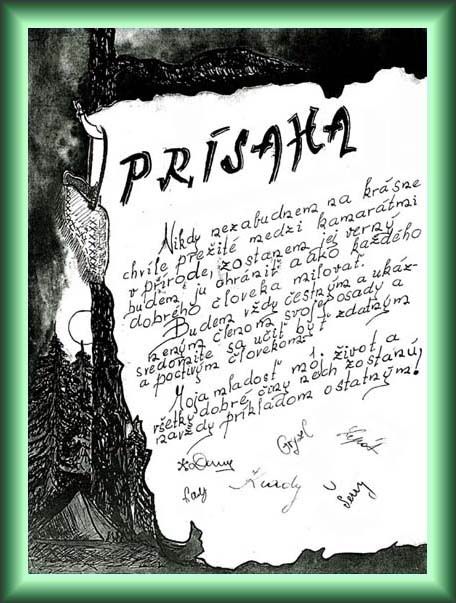 PRÍSAHA
Nikdy nezabudnem na krásne
chvíle prežité medzi kamarátmi
v prírode, zostanem jej verný
budem ju chrániť a ako každého
dobrého človeka milovať.
Budem vždy čestným a ukáz-
neným členom svojej osady a
svedomite sa učiť byť zdatným
a poctivým človekom.
Moja mladosť, môj život, a
všetky dobré činy nech zostanú
navždy príkladom ostatným!
Kurdy